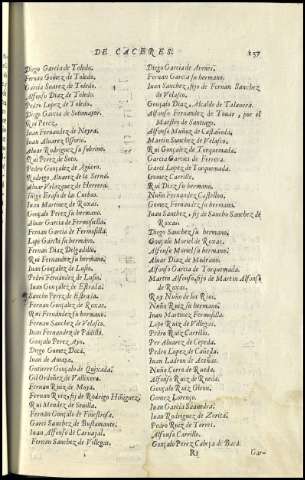 DE CACERES.
237
Diego Garcia de Toledo.
Fernan Gomez de Toledo.
Garcia Suarez de Toledo.
Alfonso Diaz de Toledo.
Pedro Lopez de Toledo.
Diego Garcia de Sotomayor.
Rui Perez.
Iuan Fernandez de Neyra.
Iuan Alvarez Osorio.
Alvar Rodriguez su sobrino.
Rui Perez de Soto.
Pedro Gonçalez de Aguero.
Rodrigo Alvarez de la Serna.
Alvar Velazquez de Herrera.
Iuan Martinez de Roxas.
Gonçalo Perez su hermano.
Alvar Garcia de Fermosilla.
Fernan Garcia de Fermosilla.
Lope Garcia su hermano.
Fernan Diaz Delgadillo.
Rui Fernandez su hermano.
Iuan Gonçalez de Luzio.
Pedro Fernandez de Luzio.
Iuan Gonçalez de
Sancho Perez de
Fernan Gonçalez de Roxas.
Rui Fernandez su hermano.
Fernan Sanchez de Velasco.
Iuan Fernandez de Padilla.
Gonçalo Perez Ayo.
Diego Gomez Docà.
Iuan de Amaya.
Gutierre Gonçalez de Quijada.
Gil Ordoñez de Valdenera.
Fernan Ruiz de Moya.
Fernan Ruiz, fij de Rodrigo Hiñiguez.
Rui Mendez de Sevilla.
Fernan Gonçalo de Finestrosa.
Garci Sanchez de Bustamante.
Iuan Alfonso de Carvajal.
Fernan Sanchez de Villegas.
Diego Garcia de
Fernan Garcia su hermano.
Iuan Sanchez, fijo de Fernan Sanchez
de Velasco.
Gonçalo Diaz, Alcalde de Talavera.
Alfonso Fernandez de Tovar, por el
Maestro de Santiago.
Alfonso Muñoz de Castañeda.
Martin Sanchez de Velasco.
Rui Gonçalez de Torquemada.
Garcia Garcia de Ferrera.
Garci Lopez de Torquemada.
Gomez Carrillo.
Rui Diaz su hermano.
Nuño Fernandez Castrillon.
Gonçalo Fernandez su hermano.
Iuan Sanchez, fij de Sancho Sanchez de
Roxas.
Diego Sanchez su hermano.
Gonçalo Muriel de Roxas.
Alfonso Muriel su hermano.
Alvar Diaz de Medrano.
Alfonso Garcia de Torquemada.
Martin Alfonso, fijo de Martin Alfonso
de Roxas.
Ruy Nuño de los Rios.
Nuño Ruiz su hermano.
Iuan Martinez Fermosilla.
Lope Ruiz de Villegas.
Pedro Ruiz Carrillo.
Per Alvarez de Cepeda.
Pedro Lopez de Cañeda.
Iuan Ladron de
Nuño Cerro de Rueda.
Alfonso Ruiz de Rueda.
Gonçalo Ruiz Giron.
Gomez Lorenço.
Iuan Garcia Saavedra.
Iuan Rodriguez de Zerita.
Pedro Ruiz de Torres.
Alfonso Carrillo.
Gonçalo Perez Cabeça de Baca.
R3
Gar-